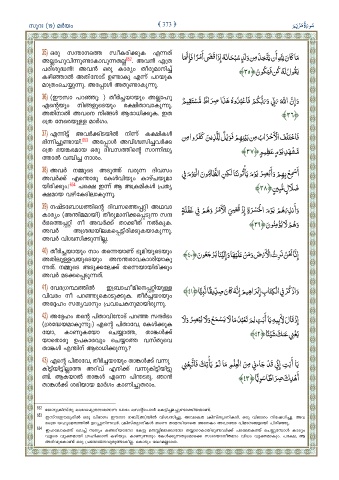 സൂറഃ (19) മർയം
﴾ 373 ﴿
سُورَةُ مَرْيَم
35) ഒരു സന്താനത്തെ സ്വീകരിക്കുക എന്നത്
അല്ലാഹുവിന്നുണ്ടാകാവുന്നതല്ല
പരിശുദ്ധൻ! അവൻ ഒരു കാര്യം തീരുമാനിച്ച്
കഴിഞ്ഞാൽ അതിനോട് ഉണ്ടാകൂ എന്ന് പറയുക
മാത്രംചെയ്യുന്നു. അപ്പോൾ അതുണ്ടാകുന്നു.
مَا كَانَ لِلَّهِ أَن يَتَّخِذَ مِن وَلَدٍ سُبْحَانَهُ إِذَا قَضَىٰ أَمْرًا فَإِنَّمَا
يَقُولُ لَهُ كُن فَيَكُونُ ﴿٣٥﴾
36) (ഈസാ പറഞ്ഞു :) തീർച്ചയായും അല്ലാഹു
എന്റെയും നിങ്ങളുടെയും രക്ഷിതാവാകുന്നു.
അതിനാൽ അവനെ നിങ്ങൾ ആരാധിക്കുക. ഇത
ത്രെ നേരെയുള്ള മാർഗം.
وَإِنَّ اللَّهَ رَبِّي وَرَبُّكُمْ فَاعْبُدُوهُ هَٰذَا صِرَاطٌ مُّسْتَقِيمٌ
﴿٣٦﴾
37) എന്നിട്ട് അവർക്കിടയിൽ നിന്ന് കക്ഷികൾ
ഭിന്നിച്ചുണ്ടായി. അപ്പോൾ അവിശ്വസിച്ചവർക്ക
ത്രെ ഭയങ്കരമായ ഒരു ദിവസത്തിന്റെ സാന്നിദ്ധ്യ
ത്താൽ വമ്പിച്ച നാശം.
فَاخْتَلَفَ الْأَحْزَابُ مِن بَيْنِهِمْ فَوَيْلٌ لِّلَّذِينَ كَفَرُوا مِن
مَّشْهَدِ يَوْمٍ عَظِيمٍ ﴿٣٧﴾
38) അവർ നമ്മുടെ അടുത്ത് വരുന്ന ദിവസം
അവർക്ക് എന്തൊരു കേൾവിയും കാഴ്ചയുമാ
യിരിക്കും! പക്ഷെ ഇന്ന് ആ അക്രമികൾ പ്രത്യ
ക്ഷമായ വഴികേടിലാകുന്നു.
أَسْمِعْ بِهِمْ وَأَبْصِرْ يَوْمَ يَأْتُونَنَا لَٰكِنِ الظَّالِمُونَ الْيَوْمَ فِي
ضَلَالٍ مُّبِينٍ ﴿٣٨﴾
39) നഷ്ടബോധത്തിന്റെ ദിവസത്തെപ്പറ്റി അഥവാ
കാര്യം (അന്തിമമായി) തീരുമാനിക്കപ്പെടുന്ന സന്ദ
ർഭത്തെപ്പറ്റി നീ അവർക്ക് താക്കീത് നൽകുക.
അവർ അശ്രദ്ധയിലകപ്പെട്ടിരിക്കുകയാകുന്നു.
അവർ വിശ്വസിക്കുന്നില്ല.
وَأَنذِرْهُمْ يَوْمَ الْحَسْرَةِ إِذْ قُضِيَ الْأَمْرُ وَهُمْ فِي غَفْلَةٍ
وَهُمْ لَا يُؤْمِنُونَ ﴿٣٩﴾
40) തീർച്ചയായും നാം തന്നെയാണ് ഭൂമിയുടെയും
അതിലുള്ളവരുടെയും അനന്തരാവകാശിയാകു
ന്നത്. നമ്മുടെ അടുക്കലേക്ക് തന്നെയായിരിക്കും
അവർ മടക്കപ്പെടുന്നത്.
إِنَّا نَحْنُ نَرِثُ الْأَرْضَ وَمَنْ عَلَيْهَا وَإِلَيْنَا يُرْجَعُونَ ﴿٤٠﴾
41) വേദഗ്രന്ഥത്തിൽ ഇബ്രാഹീമിനെപ്പറ്റിയുള്ള
വിവരം നീ പറഞ്ഞുകൊടുക്കുക. തീർച്ചയായും
അദ്ദേഹം സത്യവാനും പ്രവാചകനുമായിരുന്നു.
وَاذْكُرْ فِي الْكِتَابِ إِبْرَاهِيمَ إِنَّهُ كَانَ صِدِّيقًا نَّبِيًّا ﴿٤١﴾
42) അദ്ദേഹം തന്റെ പിതാവിനോട് പറഞ്ഞ സന്ദർഭം
(ശ്രദ്ധേയമാകുന്നു:) എന്റെ പിതാവേ, കേൾക്കുക
യോ, കാണുകയോ ചെയ്യാത്ത, താങ്കൾക്ക്
യാതൊരു ഉപകാരവും ചെയ്യാത്ത വസ്തുവെ
താങ്കൾ എന്തിന് ആരാധിക്കുന്നു.?
إِذْ قَالَ لِأَبِيهِ يَا أَبَتِ لِمَ تَعْبُدُ مَا لَا يَسْمَعُ وَلَا يُبْصِرُ وَلَا
يُغْنِي عَنكَ شَيْئًا ﴿٤٢﴾
43) എന്റെ പിതാവേ, തീർച്ചയായും താങ്കൾക്ക് വന്നു
കിട്ടിയിട്ടില്ലാത്ത അറിവ് എനിക്ക് വന്നുകിട്ടിയിട്ടു
ണ്ട്. ആകയാൽ താങ്കൾ എന്നെ പിന്തുടരൂ. ഞാൻ
താങ്കൾക്ക് ശരിയായ മാർഗം കാണിച്ചുതരാം.
يَا أَبَتِ إِنِّي قَدْ جَاءَنِي مِنَ الْعِلْمِ مَا لَمْ يَأْتِكَ فَاتَّبِعْنِي
أَهْدِكَ صِرَاطًا سَوِيًّا ﴿٤٣﴾